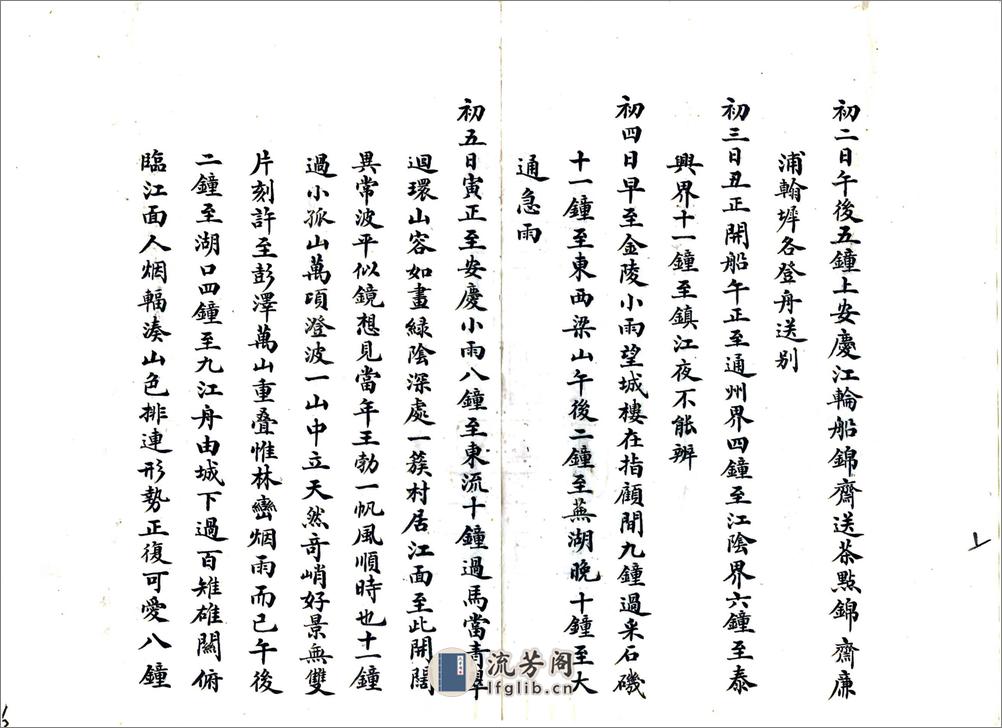 初二日午後五鐘上安慶江輪船錦齋送茶點錦齋廉
浦翰墀各登舟送别
初三日丑正開船午正至通州界四鐘至江陰界六鐘至泰
興界十一鐘至鎮江夜不能辨
初四日早至金陵小雨望城樓在指顧間九鐘過采石磯
十一鐘至東西梁山午後二鐘至蕪湖晚十鐘至大
通急雨
初五日寅正至安慶小雨八鐘至東流十鐘過馬當青翠
迴環山容如畫緑陰深處一蔟村居江面至此開闊
異常波平似鏡想見當年王勃一帆風順時也十一鐘
過小孤山萬頃澄波一山中立天然奇峭好景無雙
片刻許至彭澤萬山重叠惟林巒烟雨而已午後
二鐘至湖口四鐘至九江舟由城下過百雉雄闗俯
臨江面人烟輻湊山色排連形勢正復可愛八鐘
上
流芳阁
lfglib.cn